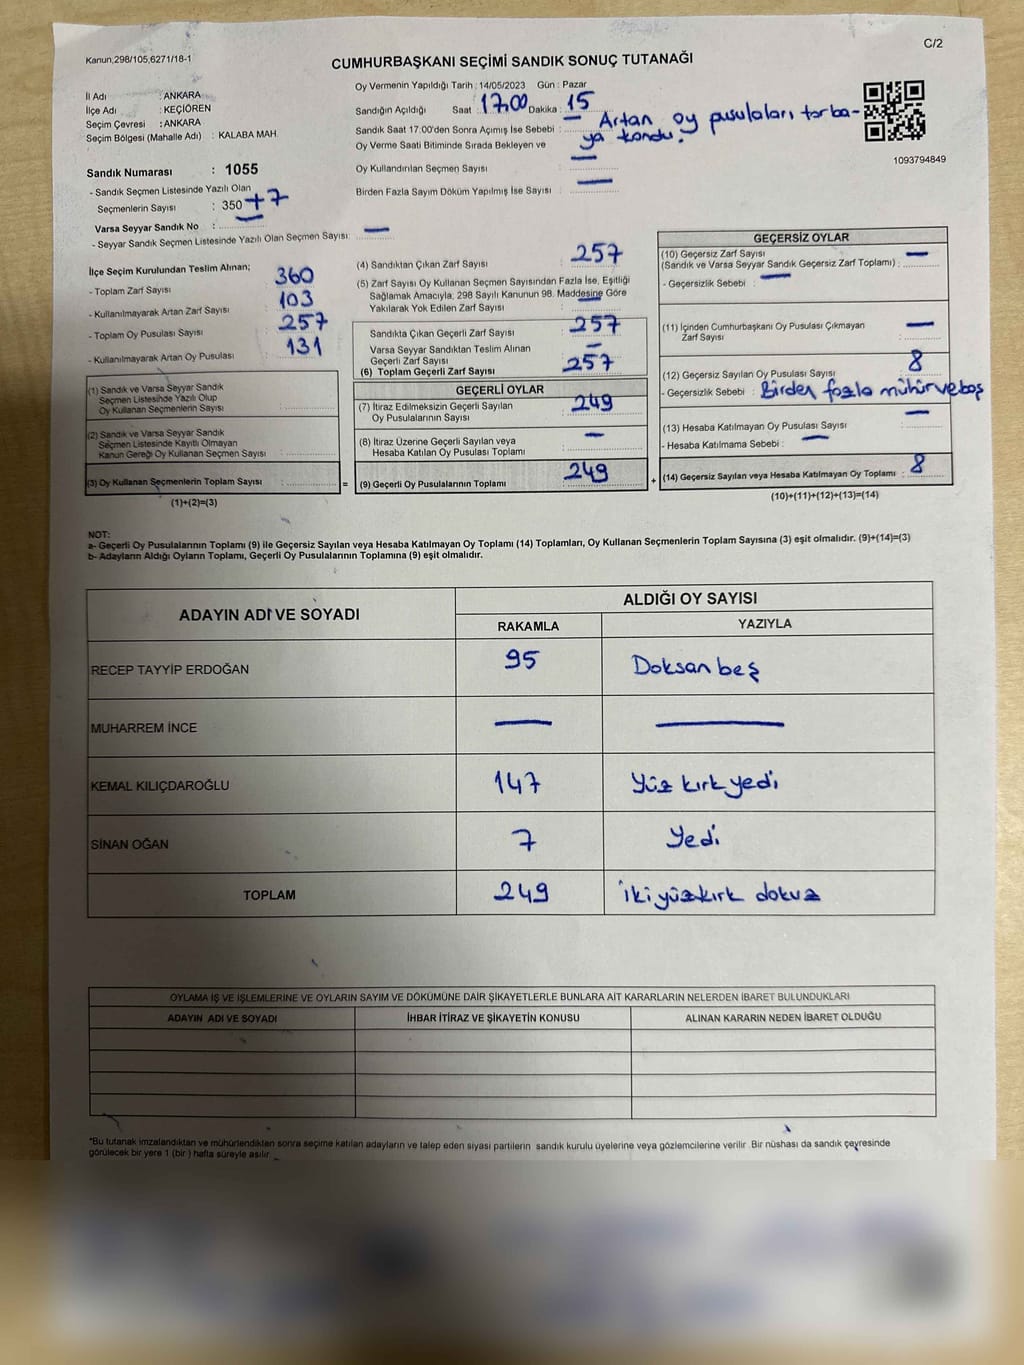 Kanun,298/105,6271/18-1
C/2
CUMHURBAŞKANI SEÇİMİ SANDIK SONUÇ TUTANAĞI
İl Adı : ANKARA
İlçe Adı : KEÇİÖREN
Seçim Çevresi : ANKARA
Seçim Bölgesi (Mahalle Adı) : KALABA MAH.
Oy Vermenin Yapıldığı Tarih : 14/05/2023 Gün : Pazar
Sandığın Açıldığı Saat : 17,00 Dakika : 15
Sandık Saat 17:00'den Sonra Açımış İse Sebebi : Artan oy pusulaları torba-
ya kondu.
Oy Verme Saati Bitiminde Sırada Bekleyen ve
Oy Kullandırılan Seçmen Sayısı : —
Birden Fazla Sayım Döküm Yapılmış İse Sayısı : —
1093794849
Sandık Numarası : 1055
- Sandık Seçmen Listesinde Yazılı Olan
Seçmenlerin Sayısı : 350 +7
Varsa Seyyar Sandık No : —
- Seyyar Sandık Seçmen Listesinde Yazılı Olan Seçmen Sayısı: —
İlçe Seçim Kurulundan Teslim Alınan;
- Toplam Zarf Sayısı : 360
- Kullanılmayarak Artan Zarf Sayısı : 103
- Toplam Oy Pusulası Sayısı : 257
- Kullanılmayarak Artan Oy Pusulası : 131
(1) Sandık ve Varsa Seyyar Sandık
Seçmen Listesinde Yazılı Olup
Oy Kullanan Seçmenlerin Sayısı :
(2) Sandık ve Varsa Seyyar Sandık
Seçmen Listesinde Kayıtlı Olmayan
Kanun Gereği Oy Kullanan Seçmen Sayısı :
(3) Oy Kullanan Seçmenlerin Toplam Sayısı : =
(1)+(2)=(3)
(4) Sandıktan Çıkan Zarf Sayısı : 257
(5) Zarf Sayısı Oy Kullanan Seçmen Sayısından Fazla İse, Eşitliği
Sağlamak Amacıyla, 298 Sayılı Kanunun 98. Maddesine Göre
Yakılarak Yok Edilen Zarf Sayısı : —
Sandıkta Çıkan Geçerli Zarf Sayısı : 257
Varsa Seyyar Sandıktan Teslim Alınan
Geçerli Zarf Sayısı : —
(6) Toplam Geçerli Zarf Sayısı : 257
GEÇERLİ OYLAR
(7) İtiraz Edilmeksizin Geçerli Sayılan
Oy Pusulasının Sayısı : 249
(8) İtiraz Üzerine Geçerli Sayılan veya
Hesaba Katılan Oy Pusulası Toplamı : —
(9) Geçerli Oy Pusulalarının Toplamı : 249 +
GEÇERSİZ OYLAR
(10) Geçersiz Zarf Sayısı
(Sandık ve Varsa Seyyar Sandık Geçersiz Zarf Toplamı) : —
- Geçersizlik Sebebi : —
(11) İçinden Cumhurbaşkanı Oy Pusulası Çıkmayan
Zarf Sayısı : —
(12) Geçersiz Sayılan Oy Pusulası Sayısı : 8
- Geçersizlik Sebebi : Birden fazla mühür ve boş
(13) Hesaba Katılmayan Oy Pusulası Sayısı : —
- Hesaba Katılmama Sebebi : —
(14) Geçersiz Sayılan veya Hesaba Katılmayan Oy Toplamı : 8
(10)+(11)+(12)+(13)=(14)
NOT:
a- Geçerli Oy Pusulalarının Toplamı (9) ile Geçersiz Sayılan veya Hesaba Katılmayan Oy Toplamı (14) Toplamları, Oy Kullanan Seçmenlerin Toplam Sayısına (3) eşit olmalıdır. (9)+(14)=(3)
b- Adayların Aldığı Oyların Toplamı, Geçerli Oy Pusulalarının Toplamına (9) eşit olmalıdır.
ADAYIN ADI VE SOYADI ALDIĞI OY SAYISI
RAKAMLA YAZIYLA
RECEP TAYYİP ERDOĞAN 95 Doksan beş
MUHARREM İNCE — —
KEMAL KILIÇDAROĞLU 147 Yüz kırk yedi
SİNAN OĞAN 7 Yedi
TOPLAM 249 İki yüz kırk dokuz
OYLAMA İŞ VE İŞLEMLERİNE VE OYLARIN SAYIM VE DÖKÜMÜNE DAİR ŞİKAYETLERLE BUNLARA AİT KARARLARIN NELERDEN İBARET BULUNDUKLARI
ADAYIN ADI VE SOYADI İHBAR İTİRAZ VE ŞİKAYETİN KONUSU ALINAN KARARIN NEDEN İBARET OLDUĞU
*Bu tutanak imzalandıktan ve mühürlendikten sonra seçime katılan adayların ve talep eden siyasi partilerin sandık kurulu üyelerine veya gözlemcilerine verilir. Bir nüshası da sandık çevresinde
görülecek bir yere 1 (bir ) hafta süreyle asılır.